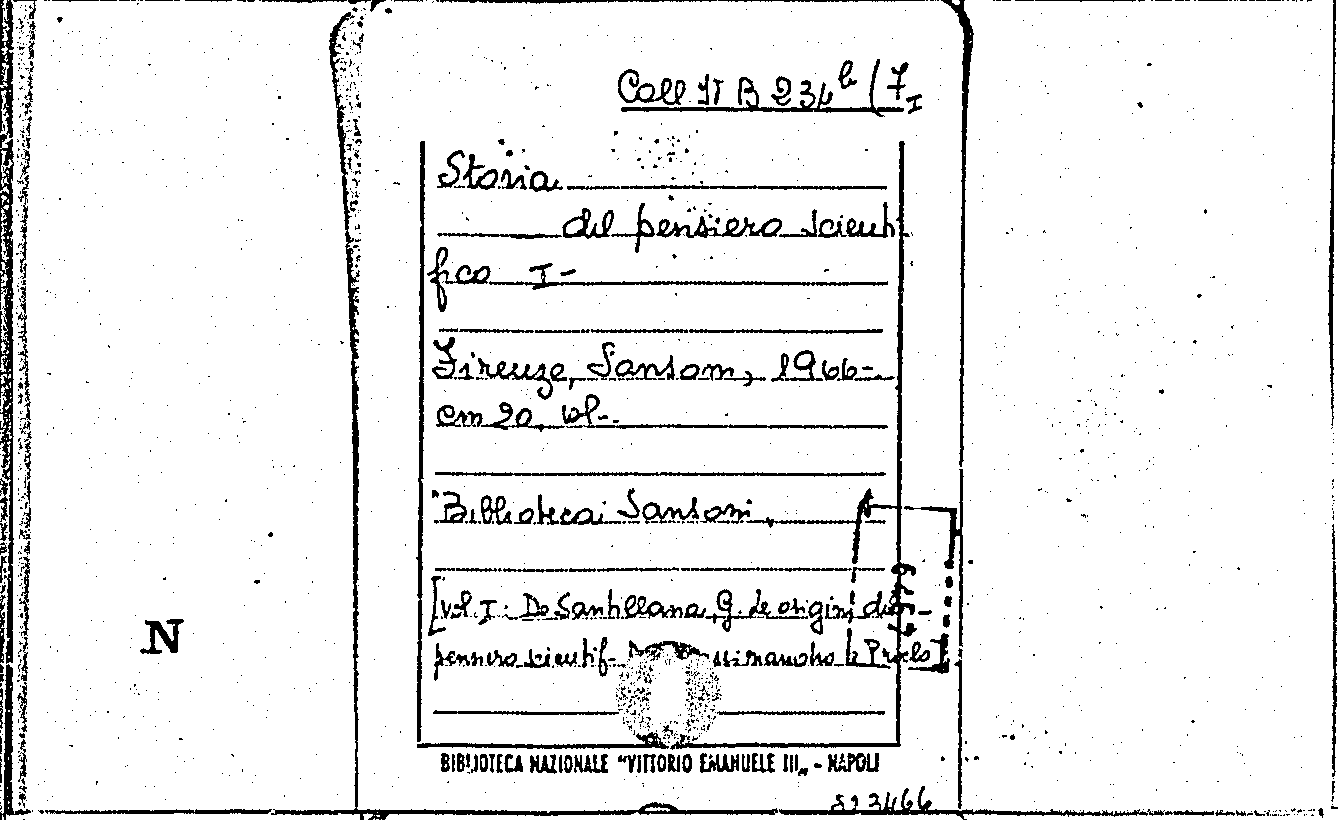 Coll II B 234 b (7 I
Storia
del pensiero scienti
fico I-
Firenze, Sansoni, 1966-
cm 20, vol-.
Biblioteca Sansoni.
[vol. I: De Santillana, G. Le origini del
pensiero scientif- Anassimandro a Proclo]
N
BIBLIOTECA NAZIONALE "VITTORIO EMANUELE III" - NAPOLI